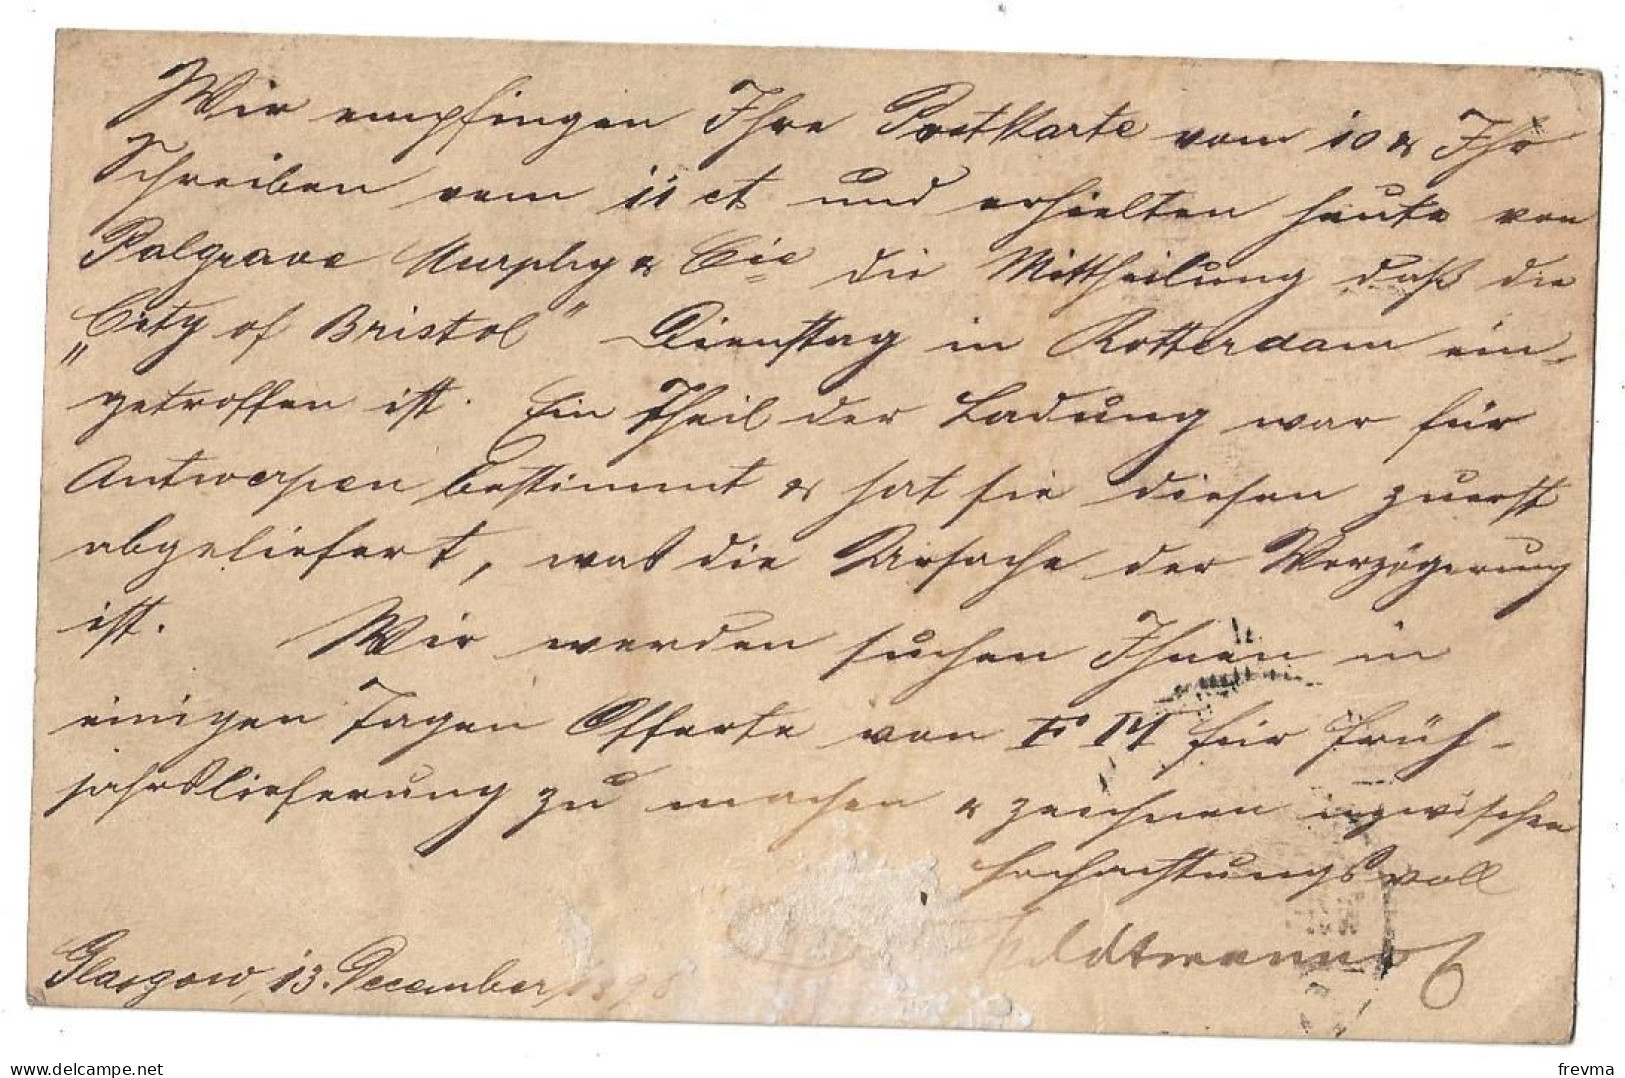 Wir empfingen Ihre Postkarte vom 10 & Ihr
Schreiben vom 11 ct und erhielten heute von
Palgrave Murphy & Cie die Mittheilung daß die
„City of Bristol" Dienstag in Rotterdam ein-
getroffen ist. Ein Theil der Ladung war für
Antwerpen bestimmt & hat sie diesen zuerst
abgeliefert, was die Ursache der Verzögerung
ist. Wir werden suchen Ihnen in
einigen Tagen Offerte von F M für Früh-
jahrslieferung zu machen & zeichnen inzwischen
hochachtungsvoll
Glasgow, 13. December, 1898
frevma